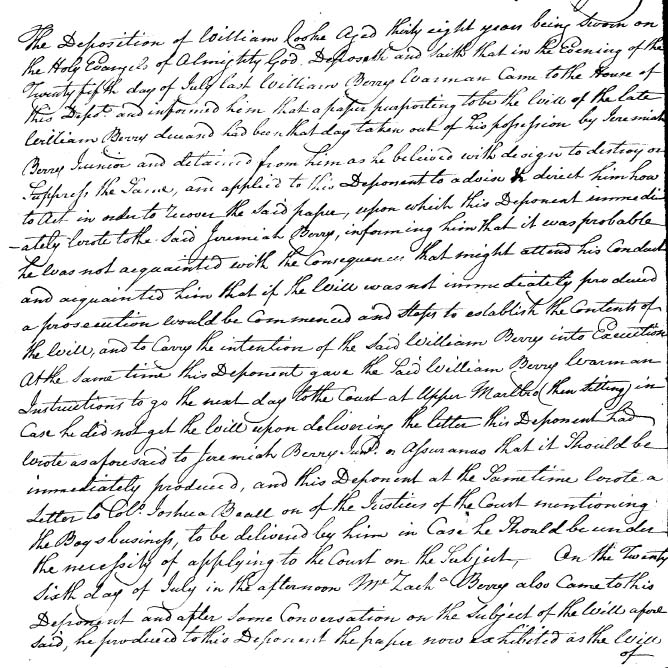 The Deposition of William Cooke Aged thirty eight years being Sworn on
the Holy Evangels of Almighty God. Deposeth and saith that in the Evening of the
Twenty fifth day of July last William Berry Warman Came to the House of
this Dept. and informed him that a paper purporting to be the Will of the late
William Berry deceasd had been that day taken out of his possession by Jeremiah
Berry Junior and detained from him as he beleived with design to destroy or
Suppress the Same, and applied to this Deponent to advise & direct him how
to Act in order to recover the said paper, upon which this Deponent immedi
-ately wrote to the said Jeremiah Berry, informing him that it was probable
he was not acquainted with the Consequences that might attend his Conduct
and acquainted him that if the Will was not immediately produced
a prosecution would be Commenced and Steps to establish the Contents of
the Will, and to Carry the intention of the Said William Berry into Execution
At the same time this Deponent gave the said William Berry Warman
Instructions to go the next day to the Court at Upper Marlbro (then sitting) in
Case he did not get the Will upon delivering the letter this Deponent had
wrote as aforesaid to Jeremiah Berry Junr. or Assurances that it Should be
immediately produced, and this Deponent at the Same time wrote a
Letter to Colo. Joshua Beall on of the Justices of the Court mentioning
the Boys business, to be delivered by him in Case he Should be under
the necessity of applying to the Court on the Subject, On the Twenty
Sixth day of July in the afternoon Mr. Zacha Berry also Came to this
Deponent and after some Conversation on the Subject of the Will afore
said, he produced to this Deponent the paper now exhibited as the Will
of